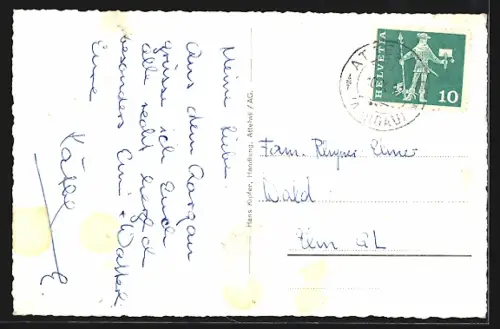 Meine Lieben
Aus dem Aargau
grüsse ich Euch
alle recht herzlich
besonders Emi + Walter.
Eure
Hans Kupfer, Handlung, Attelwil / AG.
HELVETIA
10
AT
(AARGAU)
Fam. Elmer
Wald
Elm GL